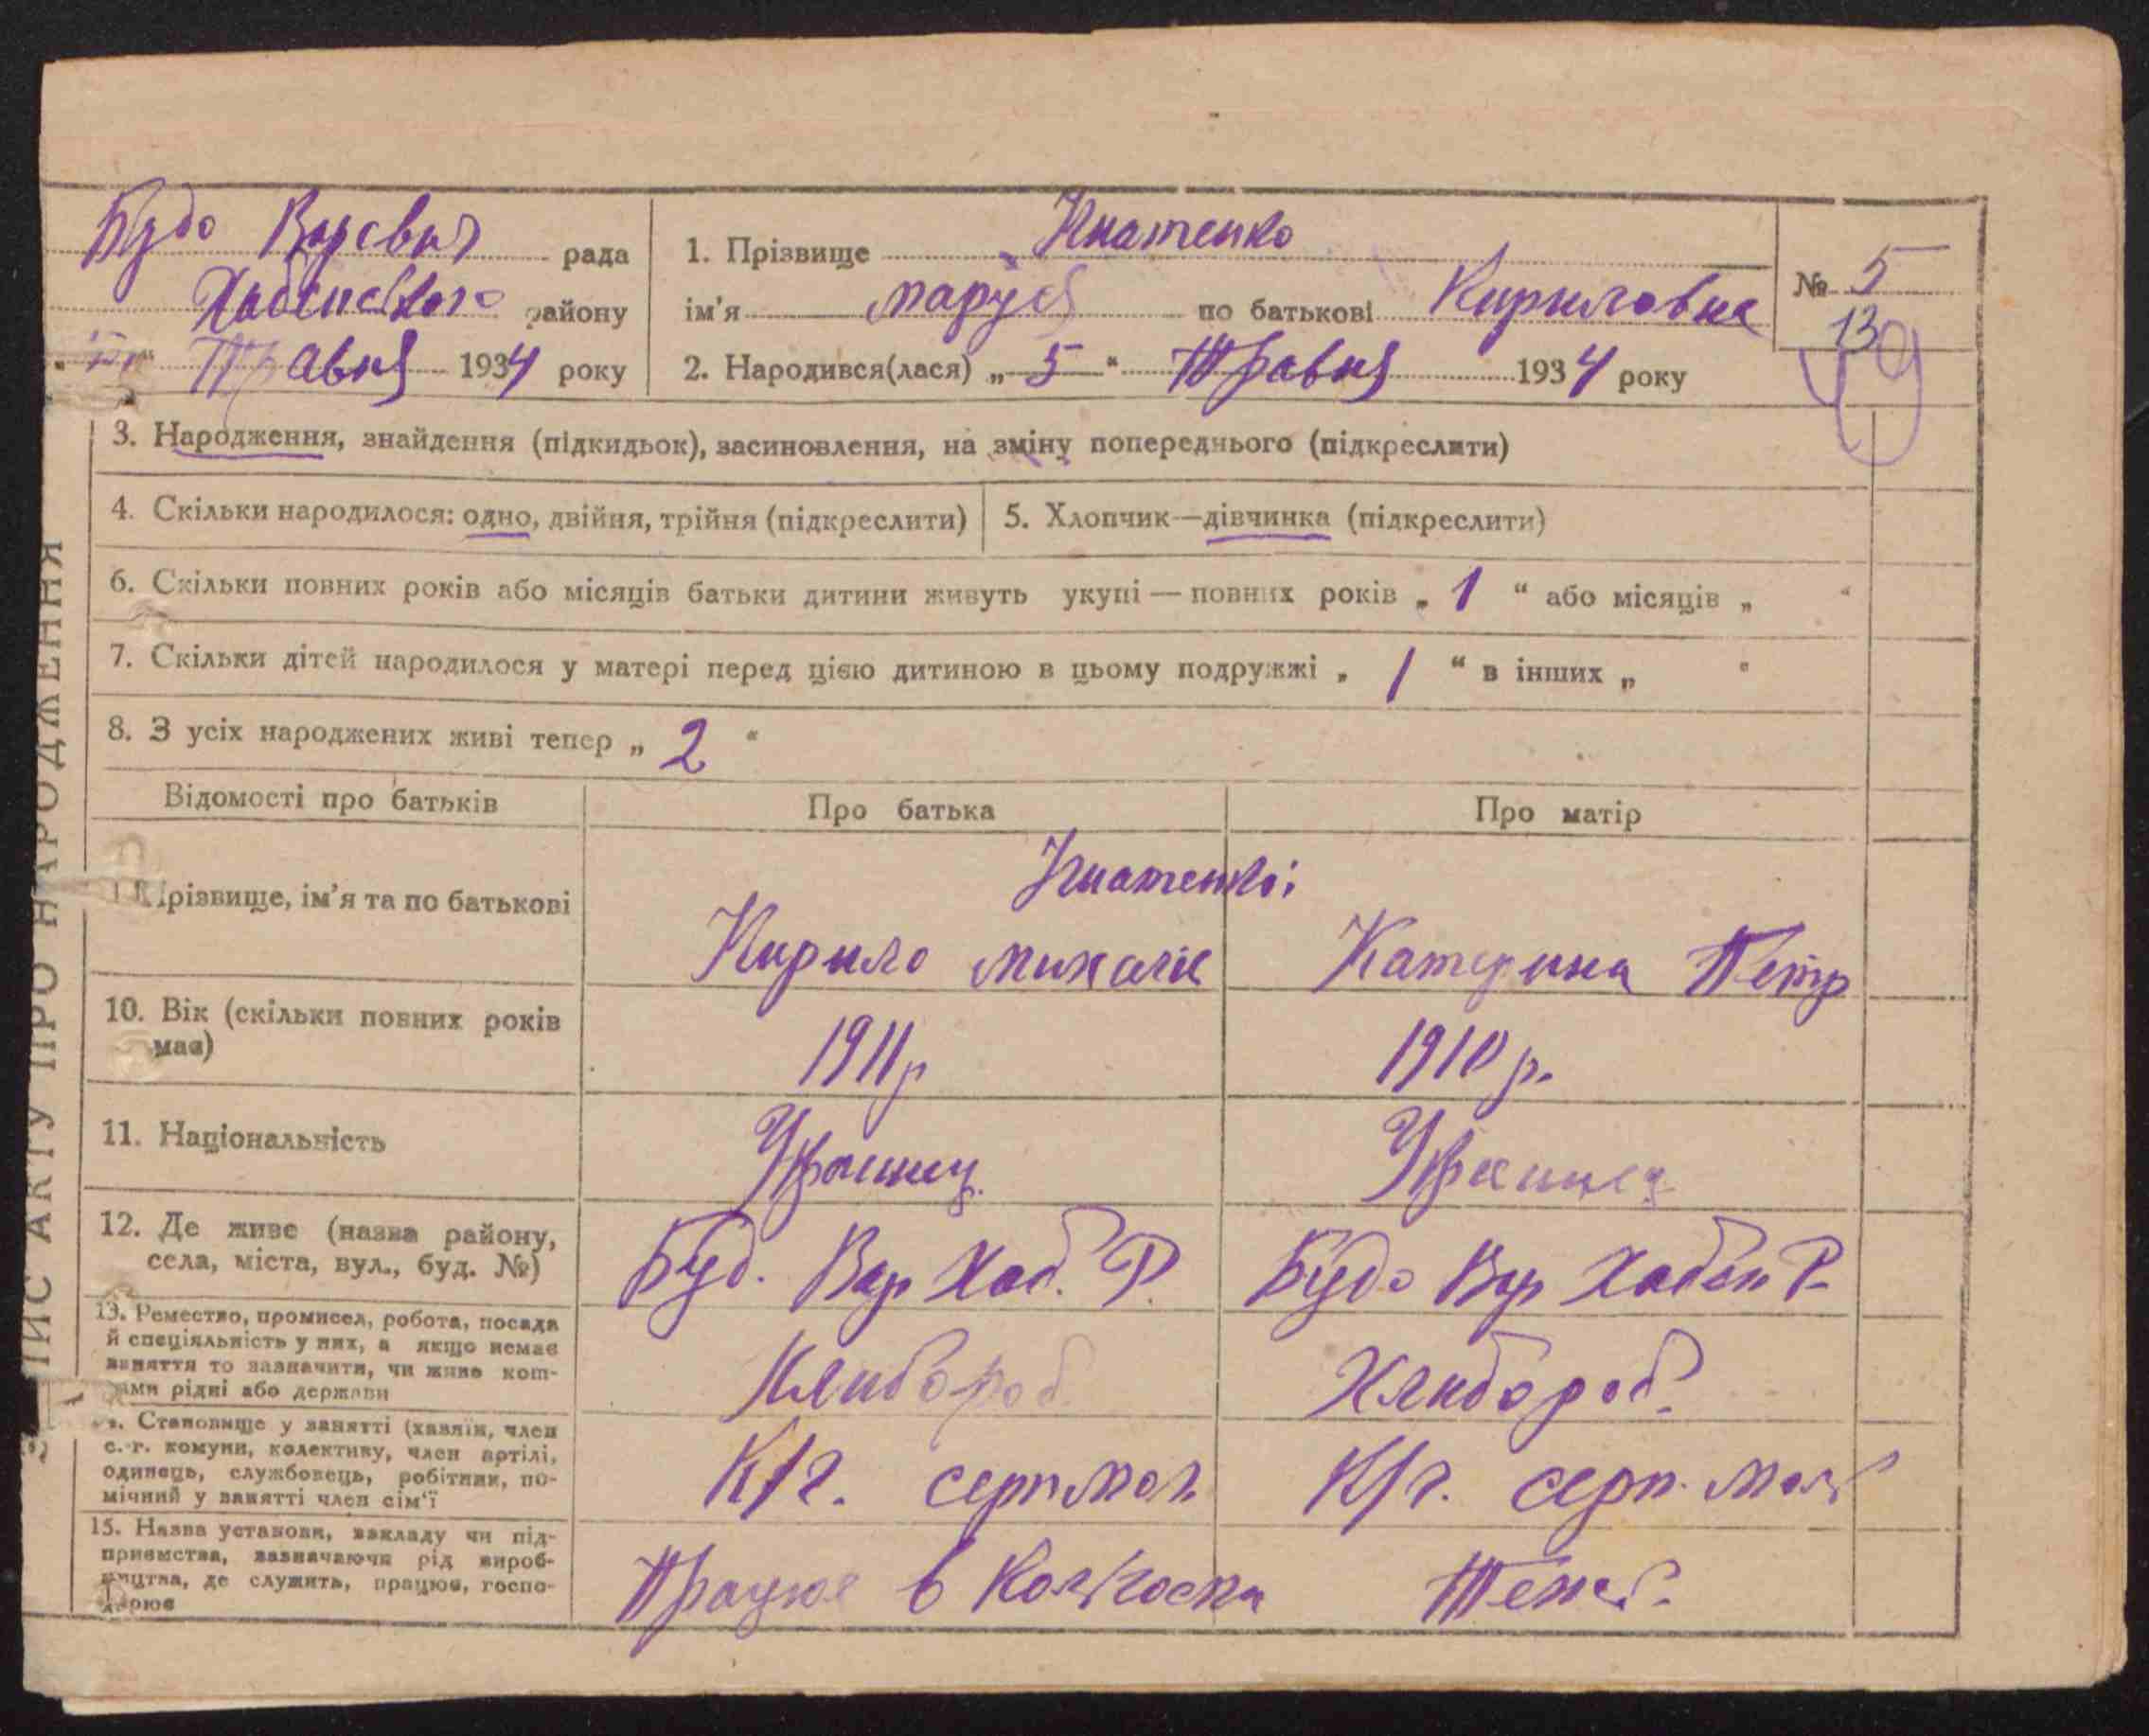 Будо Варевич рада
Хабенського району
Травня 1934 року
1. Прізвище Гнатенко
ім'я Маруся по батькові Кириловна
2. Народився(лася) „ 5 “ Травня 1934 року
№ 5
13
ПИС АКТУ ПРО НАРОДЖЕННЯ
3. Народження, знайдення (підкидьок), засиновлення, на зміну попереднього (підкреслити)
4. Скільки народилося: одно, двійня, трійня (підкреслити)
5. Хлопчик—дівчинка (підкреслити)
6. Скільки повних років або місяців батьки дитини живуть укупі — повних років „ 1 “ або місяців „ “
7. Скільки дітей народилося у матері перед цією дитиною в цьому подружжі „ 1 “ в інших „ “
8. З усіх народжених живі тепер „ 2 “
Відомості про батьків Про батька Про матір
Гнатенкоі
Прізвище, ім'я та по батькові
Кирило Михайл Катерина Петр
10. Вік (скільки повних років
має)
1911р 1910 р.
11. Національність
Украинец. Украинец
12. Де живе (назва району,
села, міста, вул., буд. №)
Буд. Вар Хаб. Р. Будо Вар Хабен Р.
13. Ремество, промисел, робота, посада
й спеціяльність у них, а якщо немає
заняття то зазначити, чи живе кош-
ами рідні або держави
Хлибороб Хлибороб.
Становище у занятті (хазяїн, член
с.-г. комуни, колективу, член артілі,
одинець, службовець, робітник, по-
мічний у занятті член сім'ї
К/г. серп мол К/г. серп. мол
15. Назва установи, закладу чи під-
приємства, зазначаючи рід вироб-
ництва, де служить, працює, госпо-
дарює
Працює в Колгоспи Теж.